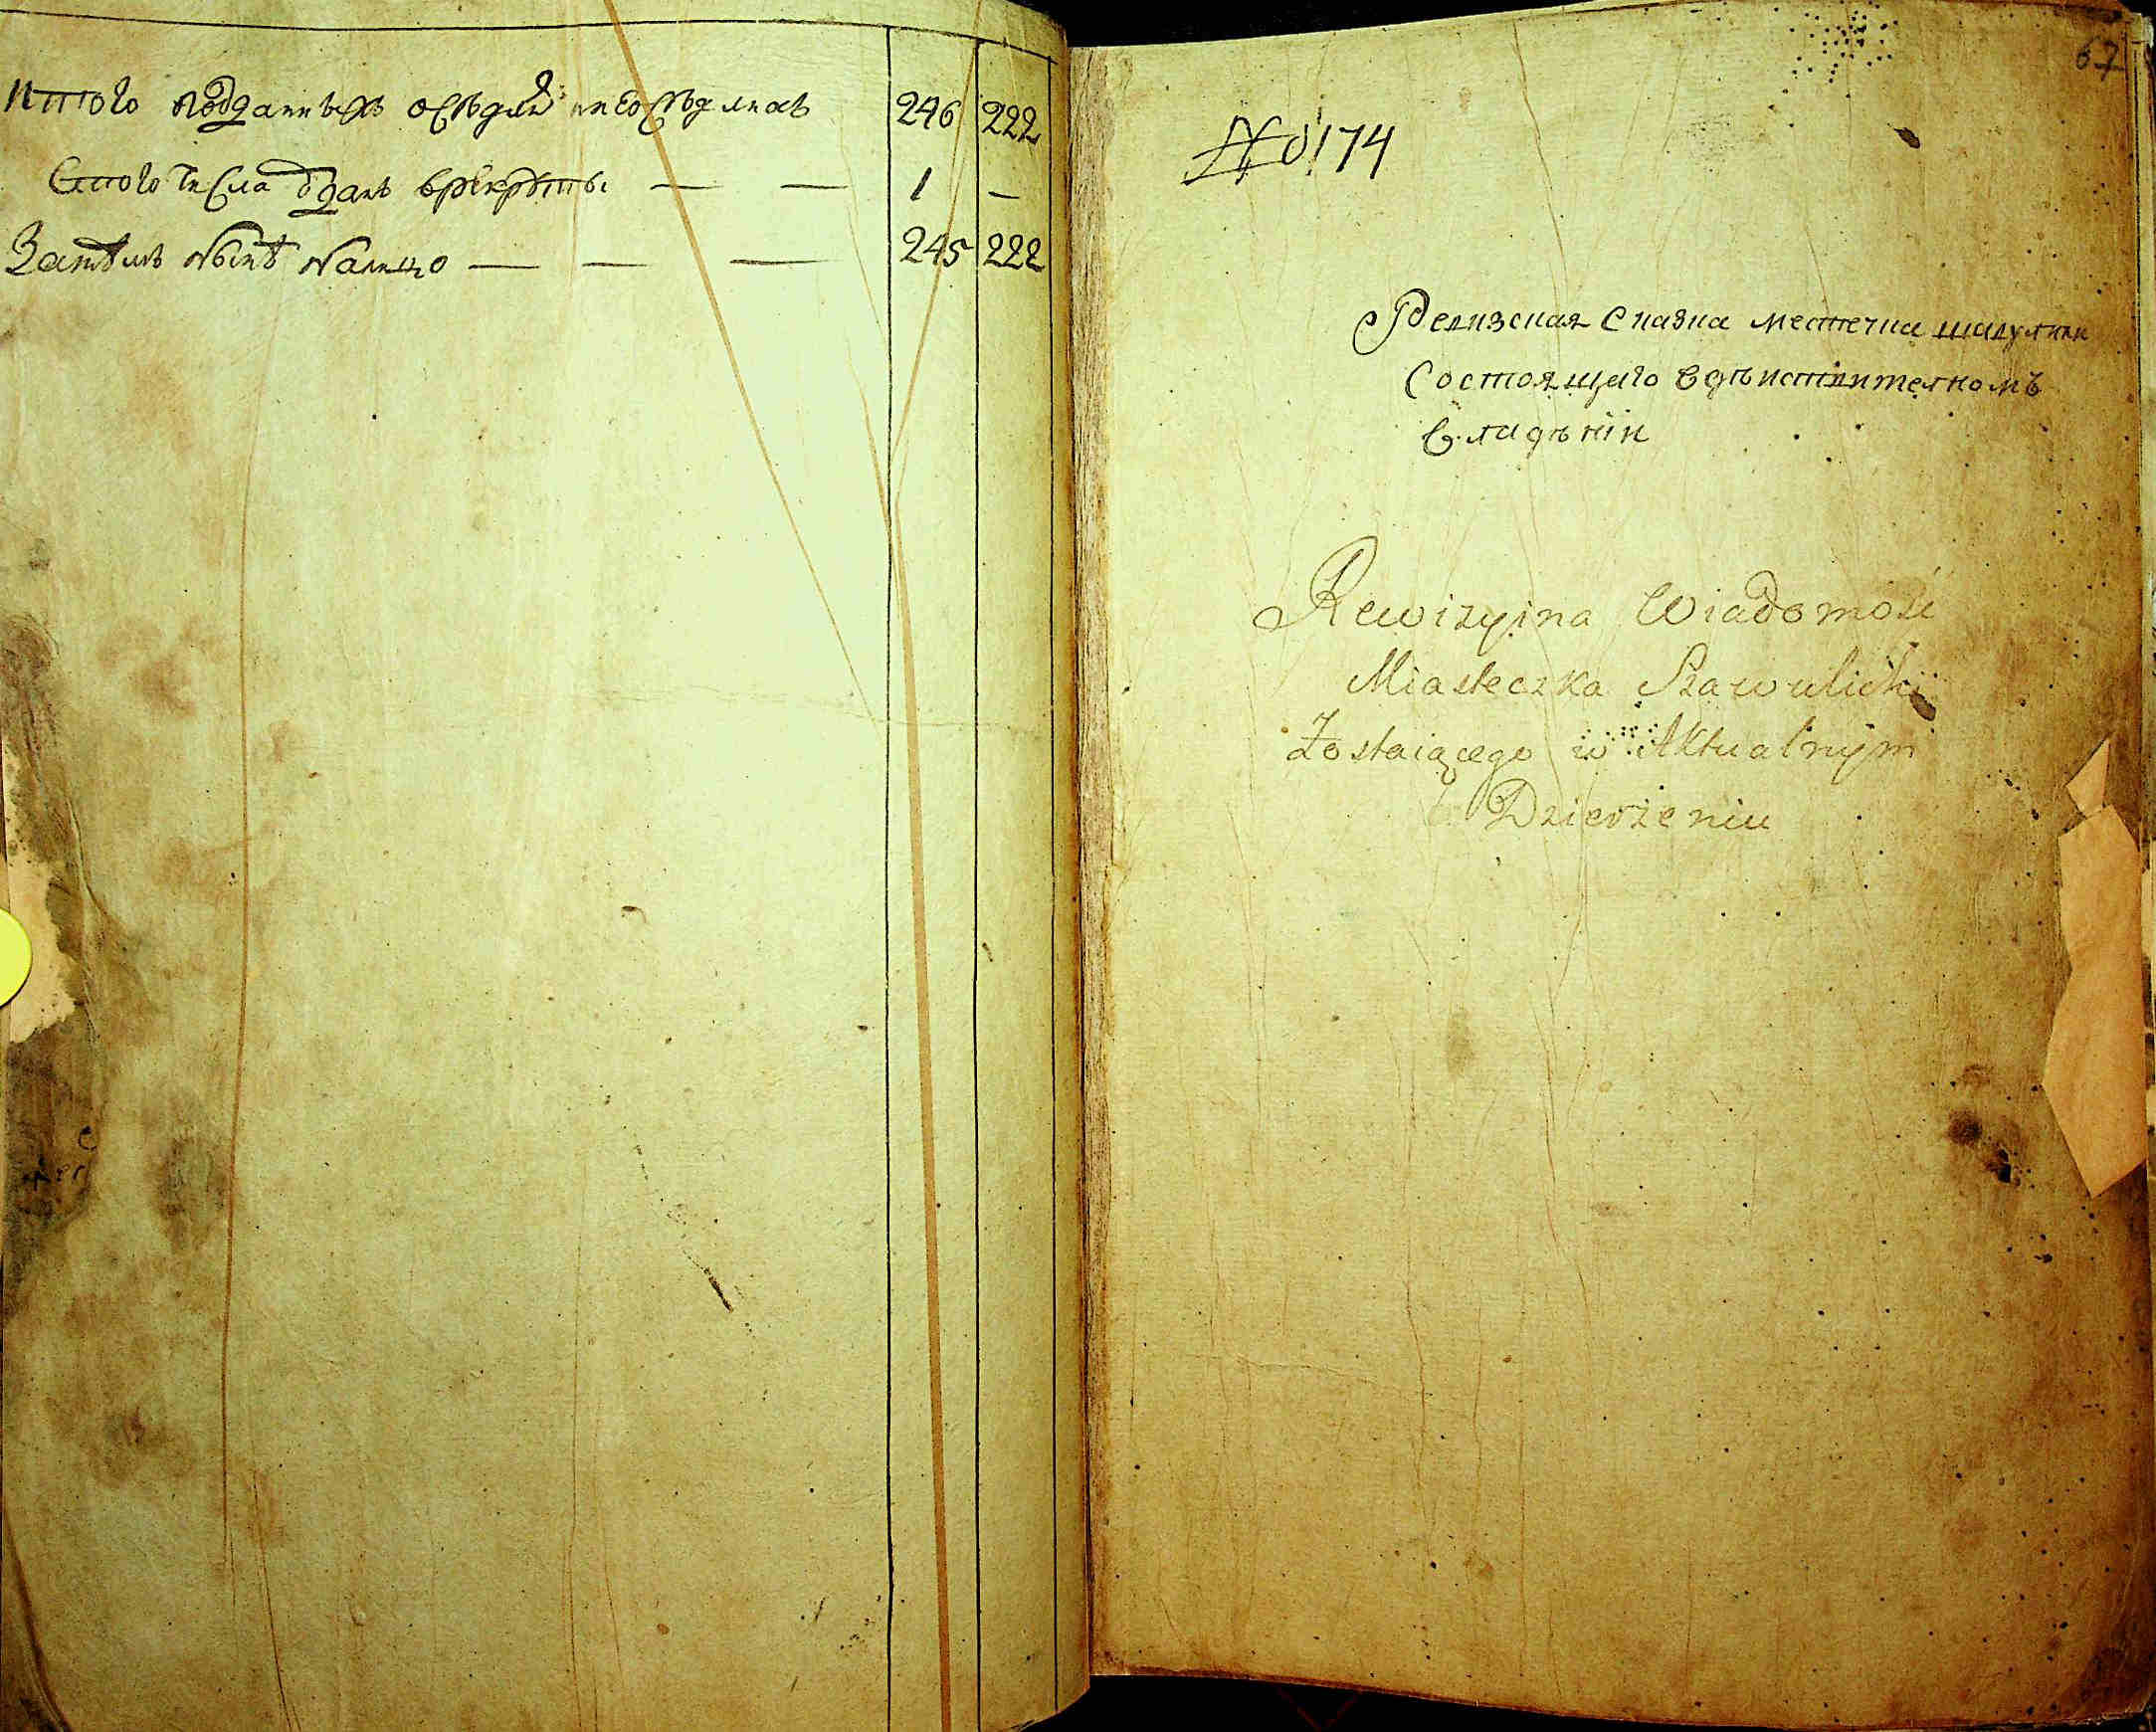 Итого подданныхъ осѣдлы и неосѣдлыхъ 246 222
С того числа отданъ в рекруты — — 1 —
Затѣмъ нынѣ налицо — — — 245 222
67
№ 174
Ревизская сказка местечка шавулики
состоящего в дѣиствителномъ
владѣніи
Rewizyina Wiadomość
Miasteczka Szawulicki
Zostaiącego w Aktualnym
Dzierżeniu